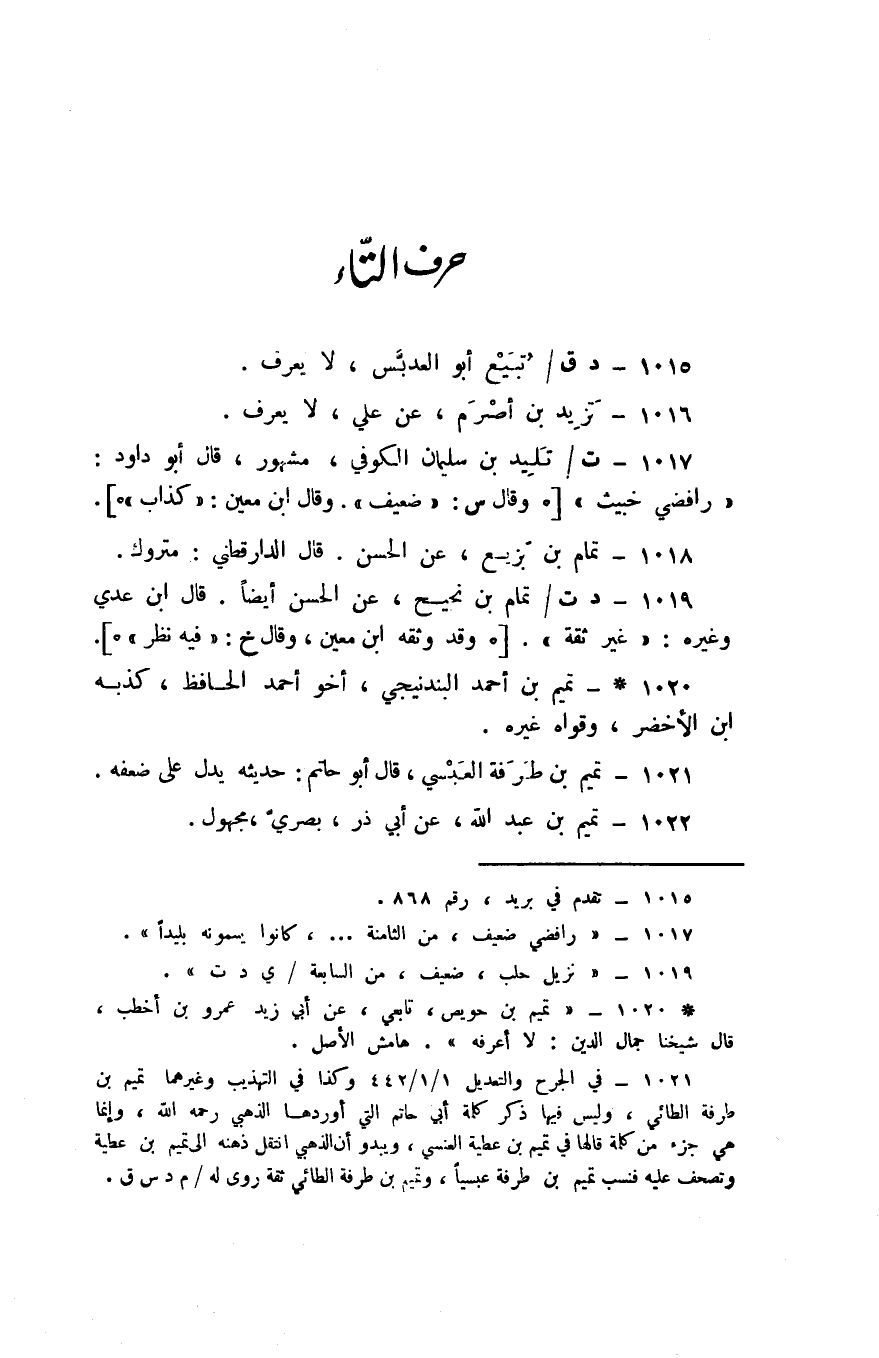 حرف التّاء
١٠١٥ – د ق / تُبَيْع أبو العدبَّس ، لا يعرف .
١٠١٦ – تَزِيد بن أصْرَم ، عن علي ، لا يعرف .
١٠١٧ – ت / تَلِيد بن سليمان الكوفي ، مشهور ، قال أبو داود :
« رافضي خبيث » [٥ وقال س : « ضعيف » . وقال ابن معين : « كذاب » ٥] .
١٠١٨ – تمام بن بَزِيع ، عن الحسن . قال الدارقطني : متروك .
١٠١٩ – د ت / تمام بن نجيح ، عن الحسن أيضاً . قال ابن عدي
وغيره : « غير ثقة » . [٥ وقد وثقه ابن معين ، وقال خ : « فيه نظر » ٥] .
١٠٢٠ * – تميم بن أحمد البندنيجي ، أخو أحمد الحافظ ، كذبه
ابن الأخضر ، وقواه غيره .
١٠٢١ – تميم بن طَرَفة العَبْسي ، قال أبو حاتم : حديثه يدل على ضعفه .
١٠٢٢ – تميم بن عبد الله ، عن أبي ذر ، بصريٌ ، مجهول .
١٠١٥ – تقدم في بريد ، رقم ٨٦٨ .
١٠١٧ – « رافضي ضعيف ، من الثامنة ... ، كانوا يسمونه بليداً » .
١٠١٩ – « نزيل حلب ، ضعيف ، من السابعة / ي د ت » .
* ١٠٢٠ – « تميم بن حويص ، تابعي ، عن أبي زيد عمرو بن أخطب ،
قال شيخنا جمال الدين : لا أعرفه » . هامش الأصل .
١٠٢١ – في الجرح والتعديل ٤٤٢/١/١ وكذا في التهذيب وغيرهما تميم بن
طرفة الطائي ، وليس فيها ذكر كلمة أبي حاتم التي أوردها الذهبي رحمه الله ، وإنما
هي جزء من كلمة قالها في تميم بن عطية العنسي ، ويبدو أن الذهبي انتقل ذهنه الى تميم بن عطية
وتصحف عليه فنسب تميم بن طرفة عبسياً ، وتميم بن طرفة الطائي ثقة روى له / م د س ق .